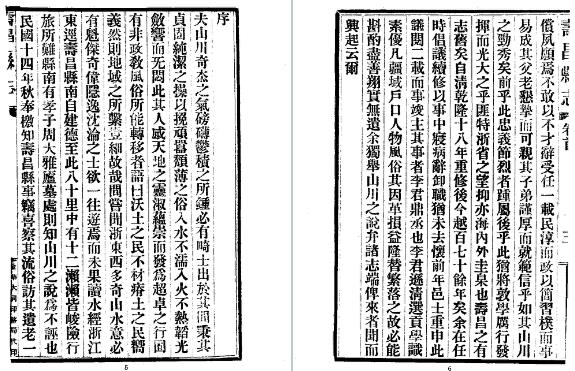 序
夫山川奇杰之氣磅礴鬱積之所鍾必有畸士出於其間秉其
貞固純潔之操以挽頑囂頹薄之俗入水不濡入火不熱韜光
斂響而无悶此其人感天地之靈淑蘊崇而發為超卓之行固
有非政敎風俗所能轉移者語曰沃土之民不材瘠土之民嚮
義然則地域之所繫豈細故哉間嘗聞浙東西多奇山水意必
有魁傑奇偉隱逸沈淪之士欲一往遊焉而未果讀水經浙江
東逕壽昌縣南自建德至此八十里中有十二瀨瀨皆峻險行
旅所難縣南有孝子周大雅廬墓處則知山川之說為不誣也
民國十四年秋奉檄知壽昌縣事竊喜察其流俗訪其遺老一
壽昌縣志
5
壽昌縣志 卷首
償夙願焉為不敢以不才辭受任一載民淳而政以簡習樸而事
易成其父老懇摯而可親其子弟謹厚而就範信乎如其山川
之勁秀矣前乎此忠義節烈者踵屬後乎此猶將敦學厲行發
揮而光大之乎匪特浙省之望抑亦海內外圭臬也壽昌之有
志舊矣自清乾隆十八年重修後今越百七十餘年矣余在任
時倡議續修以事中寢病辭卸職猶未去懷前年邑士重申此
議閱二載而事竣主其事者李君鼎丞也李君遜清選貢學識
素優凡疆域戶口人物風俗其因革損益隆替繁落之故必能
斟酌盡善翔實無遺余獨舉山川之說弁諸志端俾來者聞而
興起云爾
6